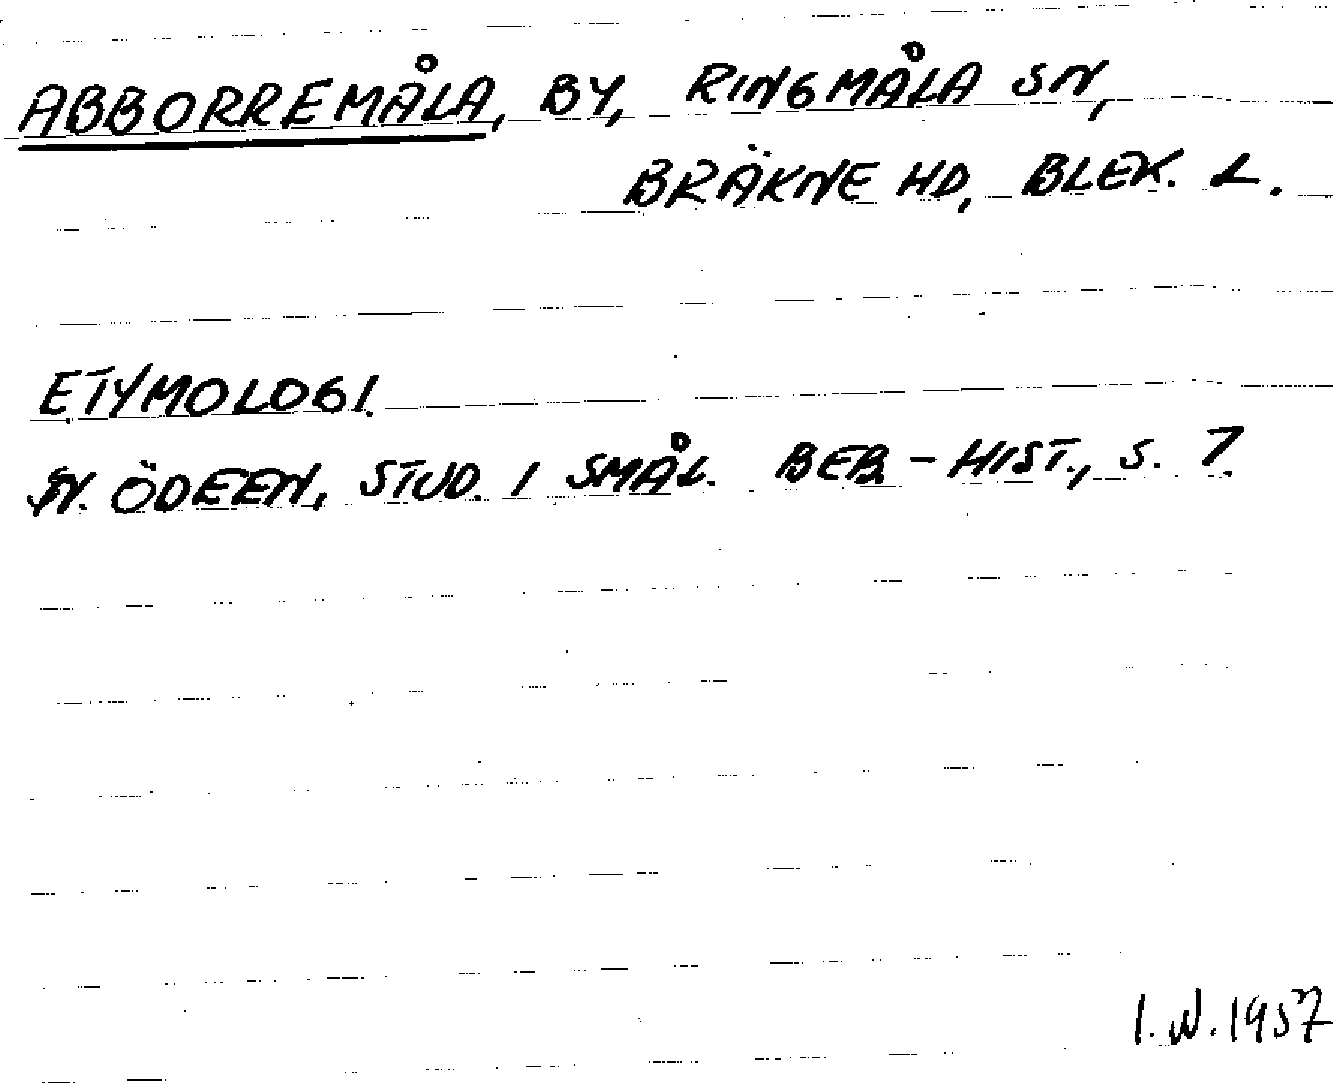 ABBORREMÅLA, BY, RINGMÅLA SN,
BRÄKNE HD, BLEK. L.
ETYMOLOGI.
N. ÖDEEN, STUD. I SMÅL. BEB.-HIST., S. 7.
I.N. 1957